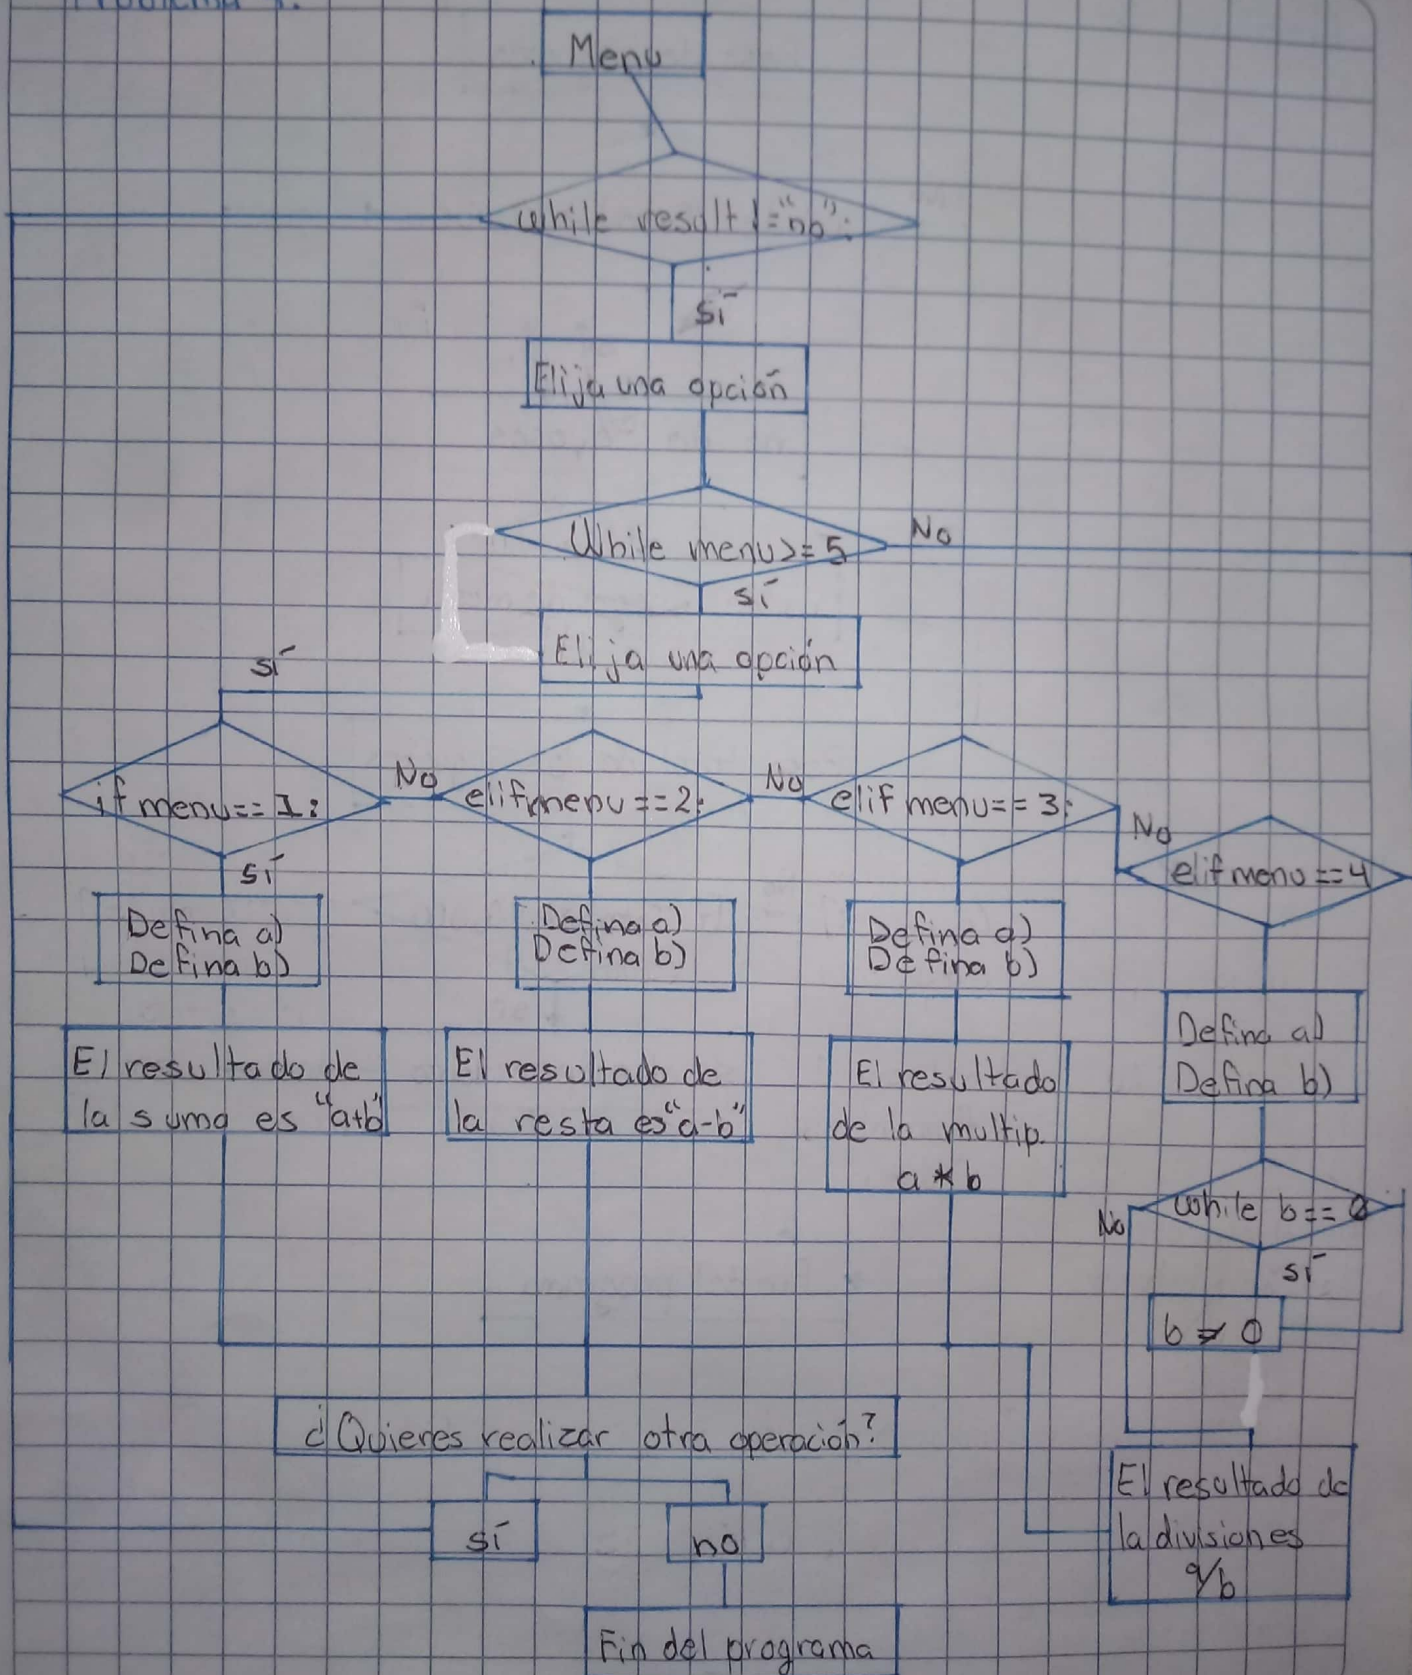 Problema 1.
Menu
while result != "no":
sí
Elija una opción
While menu >= 5
No
sí
Elija una opción
sí
if menu == 1:
No
elif menu == 2:
No
elif menu == 3:
No
elif menu == 4
sí
Defina a)
Defina b)
Defina a)
Defina b)
Defina a)
Defina b)
Defina a)
Defina b)
El resultado de
la suma es "a+b"
El resultado de
la resta es "a-b"
El resultado
de la multip.
a * b
while b == 0
No
sí
b ≠ 0
¿Quieres realizar otra operación?
sí
no
El resultado de
la division es
a/b
Fin del programa